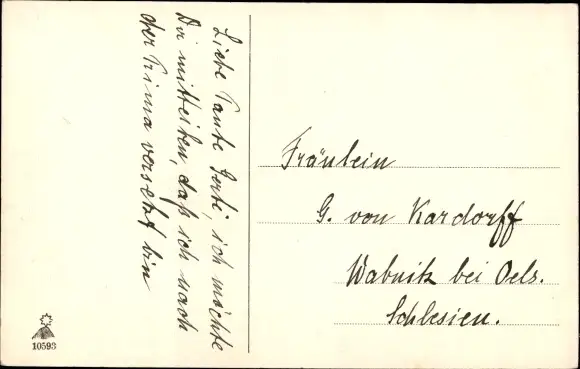 Liebe Tante Gerti, ich möchte
Dir mitteilen, daß ich nach
der Prima versetzt bin
Fräulein
G. von Kardorff
Wabnitz bei Oels.
Schlesien.
10593